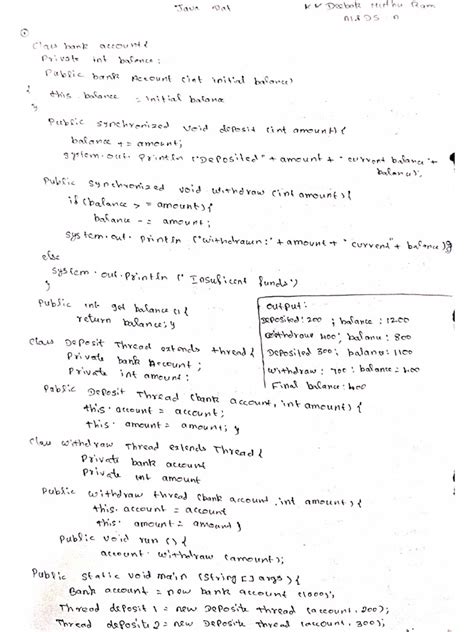 Java
AI&DS
①
Class bank account {
Private int balance;
Public bank Account (int initial balance)
{
this. balance = initial balance
}
Public synchronized void deposit (int amount) {
balance += amount;
system.out. println ("Deposited" + amount + "current balance"+
balance);
Public synchronized void withdraw (int amount) {
if (balance >= amount) {
balance -= amount;
system.out. println ("withdrawn:" + amount + "current" + balance)
}
else
system.out.println (" Insuficent funds")
}
Public int get balance () {
return balance; }
Class Deposit Thread extends thread {
Private bank Account;
Private int amount;
Public Deposit Thread (bank account, int amount) {
this. account = account;
this. amount = amount; }
output:
Deposited: 200 ; balance : 1200
withdraw 400; balanu : 800
Deposited 300; balanu : 1100
withdraw : 700; balance = 400
Final balance: 400
Class withdraw Thread extends Thread {
Private bank account
Private int amount
Public withdraw thread (bank account, int amount) {
this. account = account
this. amount = amount }
Public void run () {
account. withdraw (amount);
Public static void main (String [] args) {
Bank account = new bank account (1000);
Thread deposit 1 = new Deposite thread (account, 200);
Thread deposite 2 = new Deposite Thread (account, 300);